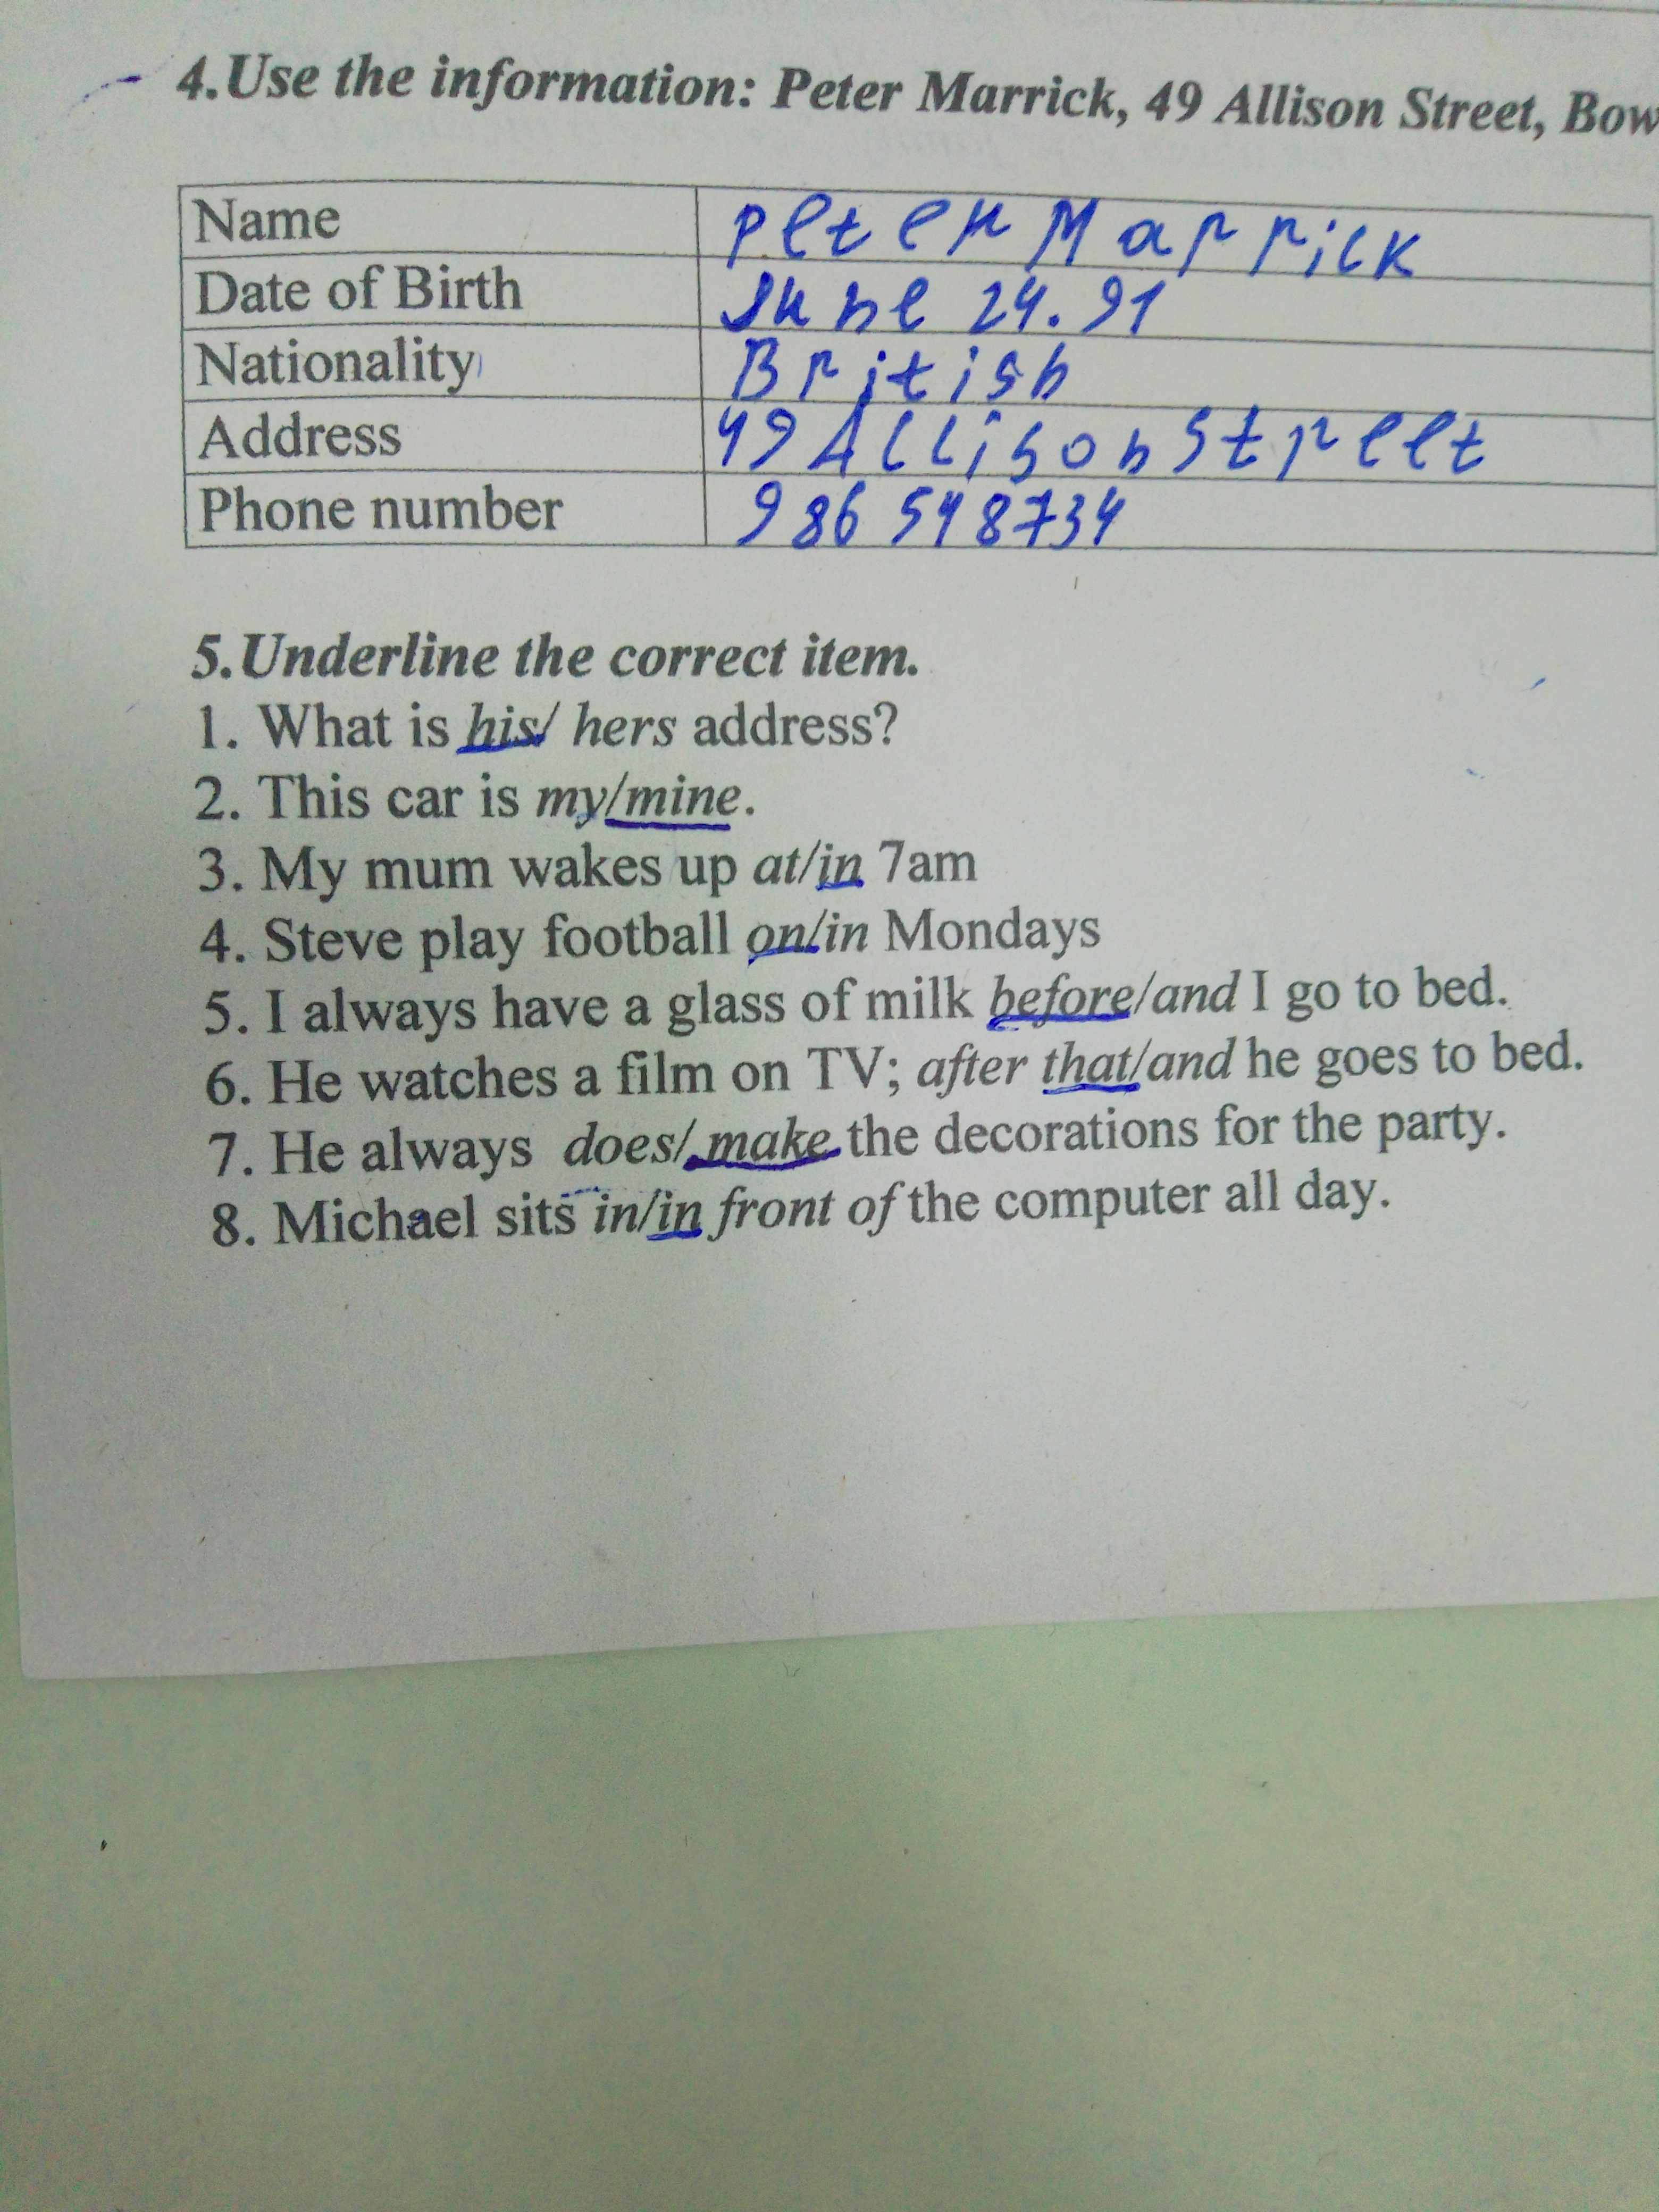 4. Use the information: Peter Marrick, 49 Allison Street, Bow
Name Peter Marrick
Date of Birth June 24.91
Nationality British
Address 49 Allison Street
Phone number 986 548734
5. Underline the correct item.
1. What is his/ hers address?
2. This car is my/mine.
3. My mum wakes up at/in 7am
4. Steve play football on/in Mondays
5. I always have a glass of milk before/and I go to bed.
6. He watches a film on TV; after that/and he goes to bed.
7. He always does/ make the decorations for the party.
8. Michael sits in/in front of the computer all day.